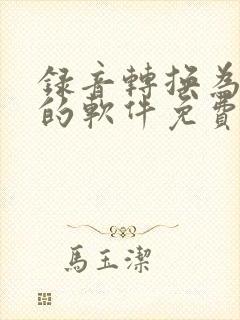 録音轉換為
的軟件免費
馬玉潔